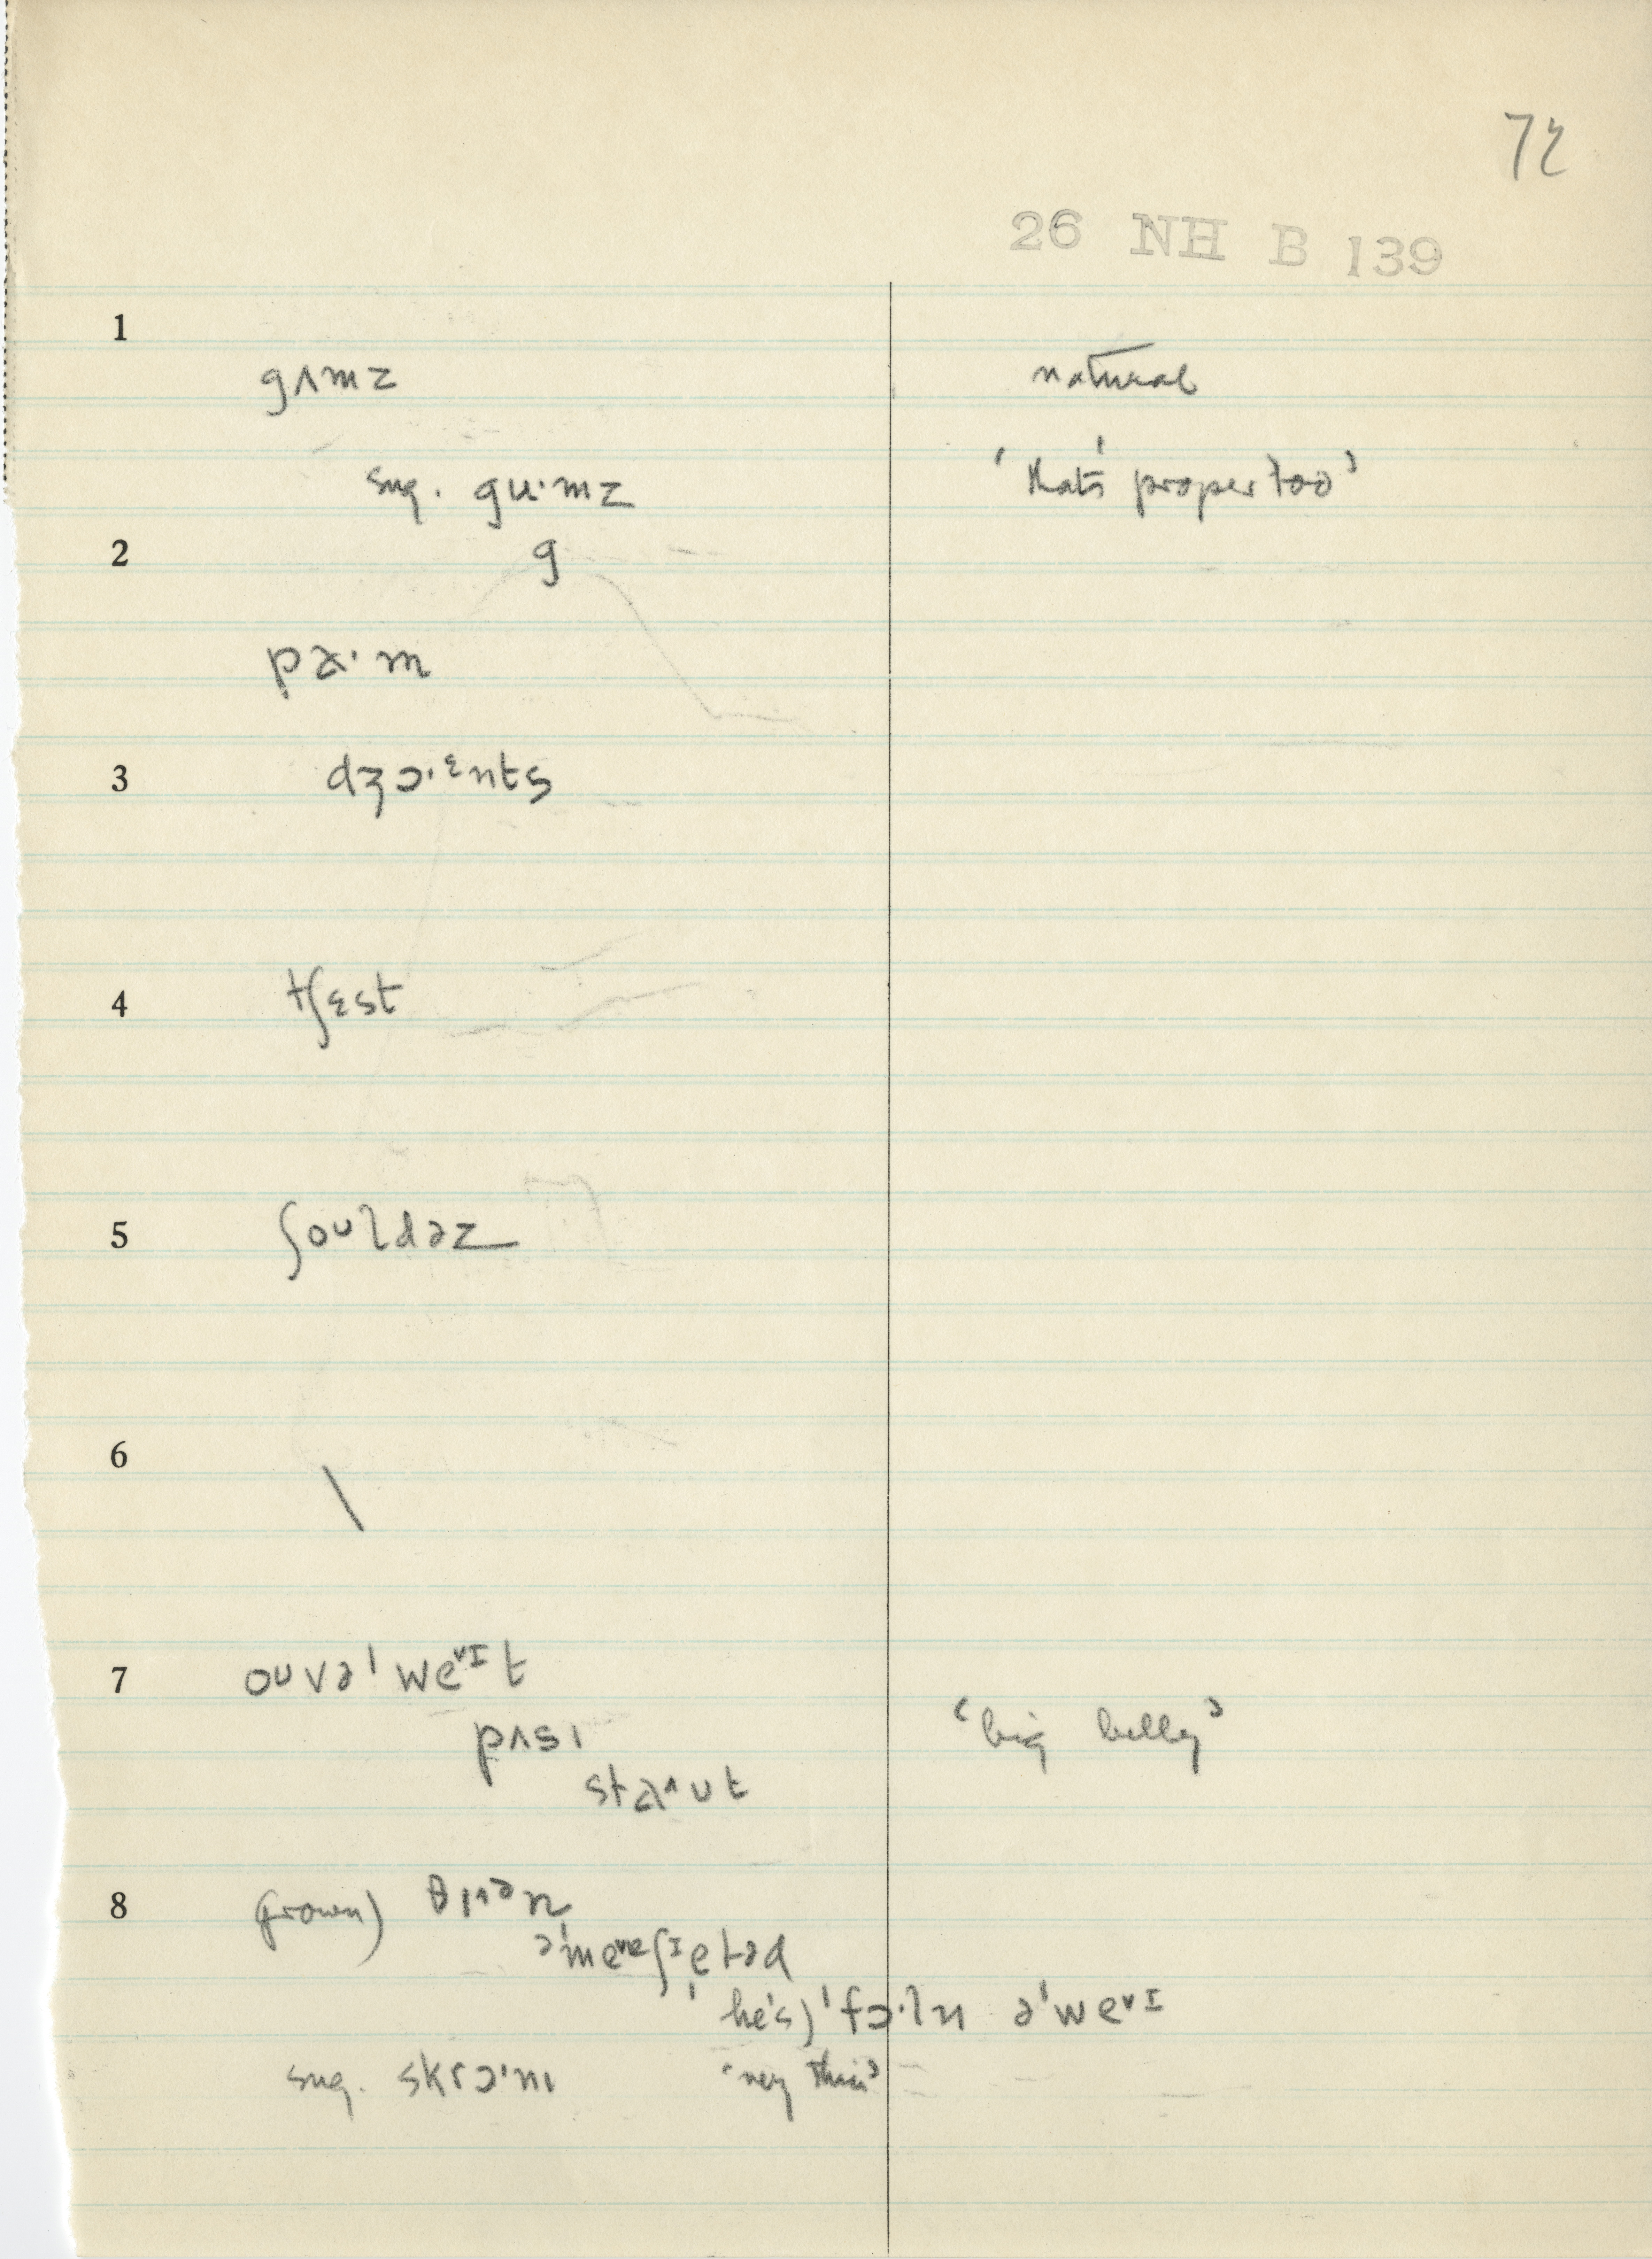 72
26 NH B 139
1
gʌmz natural
sug. gu·mz 'that's proper too'
2 g
pa·m
3 dʒɔ·ᵋnts
4 tʃɛst
5 ʃoʊldəz
6 \
7 oʊvə'weᵛᴵt
pʌsɪ 'big belly'
staˆʊt
8 grown) θɪˆᵊn
ə'meʃᴵetəd
he's) 'fɔ·ln ə'weᵛᴵ
sug. skrɔ'nɪ 'very thin'